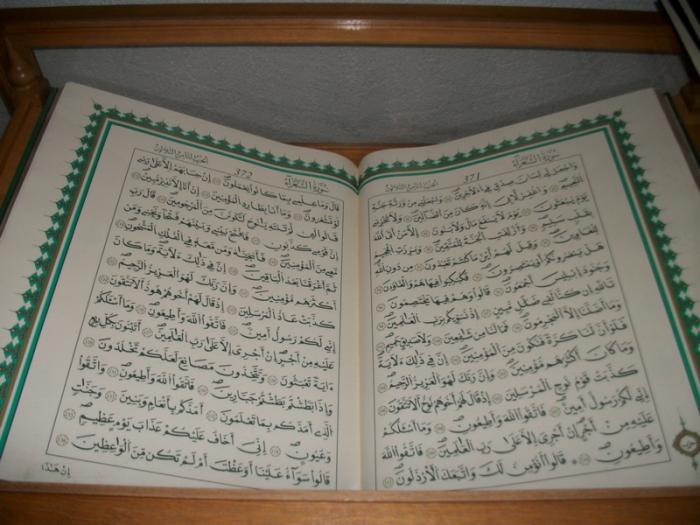 سورة الشعراء
٣٧١
واجعل لي لسان صدق في الآخرين واجعلني من ورثة جنة
النعيم واغفر لأبي إنه كان من الضالين ولا تخزني
يوم يبعثون يوم لا ينفع مال ولا بنون إلا من أتى الله
بقلب سليم وأزلفت الجنة للمتقين وبرزت الجحيم
للغاوين وقيل لهم أين ما كنتم تعبدون من دون الله
هل ينصرونكم أو ينتصرون فكبكبوا فيها هم والغاوون
وجنود إبليس أجمعون قالوا وهم فيها يختصمون
تالله إن كنا لفي ضلال مبين إذ نسويكم برب العالمين
وما أضلنا إلا المجرمون فما لنا من شافعين ولا صديق حميم
فلو أن لنا كرة فنكون من المؤمنين إن في ذلك لآية
وما كان أكثرهم مؤمنين وإن ربك لهو العزيز الرحيم
كذبت قوم نوح المرسلين إذ قال لهم أخوهم نوح ألا تتقون
إني لكم رسول أمين فاتقوا الله وأطيعون وما أسألكم
عليه من أجر إن أجري إلا على رب العالمين فاتقوا الله
وأطيعون قالوا أنؤمن لك واتبعك الأرذلون
سورة الشعراء
٣٧٢
قال وما علمي بما كانوا يعملون إن حسابهم إلا على ربي
لو تشعرون وما أنا بطارد المؤمنين إن أنا إلا نذير مبين
قالوا لئن لم تنته يا نوح لتكونن من المرجومين قال رب
إن قومي كذبون فافتح بيني وبينهم فتحا ونجني ومن
معي من المؤمنين فأنجيناه ومن معه في الفلك المشحون
ثم أغرقنا بعد الباقين إن في ذلك لآية وما كان
أكثرهم مؤمنين وإن ربك لهو العزيز الرحيم
كذبت عاد المرسلين إذ قال لهم أخوهم هود ألا تتقون
إني لكم رسول أمين فاتقوا الله وأطيعون وما أسألكم
عليه من أجر إن أجري إلا على رب العالمين أتبنون بكل ريع
آية تعبثون وتتخذون مصانع لعلكم تخلدون
وإذا بطشتم بطشتم جبارين فاتقوا الله وأطيعون واتقوا
الذي أمدكم بما تعلمون أمدكم بأنعام وبنين وجنات
وعيون إني أخاف عليكم عذاب يوم عظيم
قالوا سواء علينا أوعظت أم لم تكن من الواعظين
إن هذا